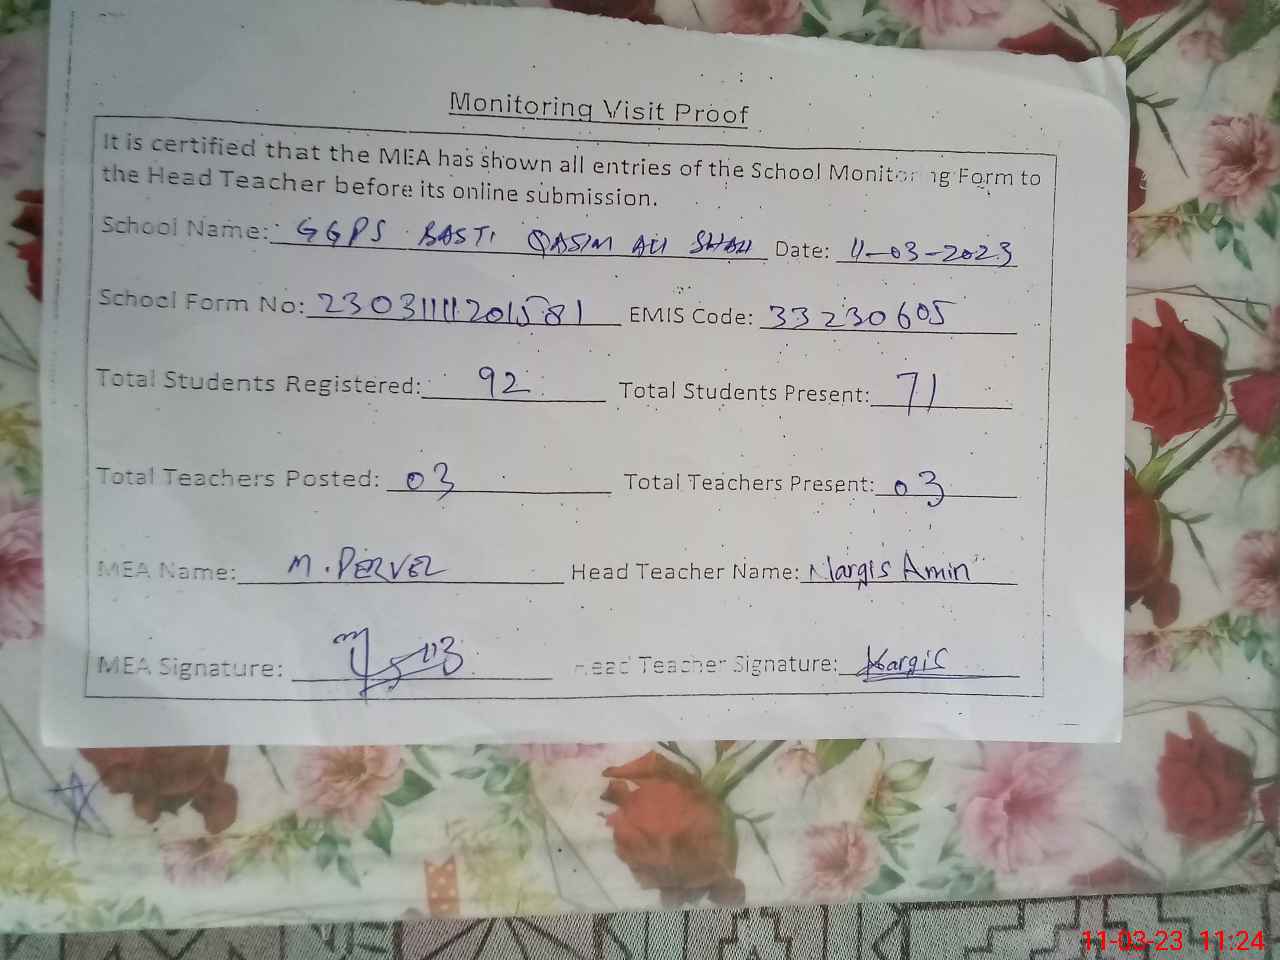 Monitoring Visit Proof
It is certified that the MEA has shown all entries of the School Monitoring Form to
the Head Teacher before its online submission.
School Name: GGPS BASTI QASIM ALI SHAH Date: 11-03-2023
School Form No: 23031111201581 EMIS Code: 33230605
Total Students Registered: 92 Total Students Present: 71
Total Teachers Posted: 03 Total Teachers Present: 03
MEA Name: M. PERVEZ Head Teacher Name: Nargis Amin
MEA Signature: Head Teacher Signature: Nargis
11-03-23 11:24